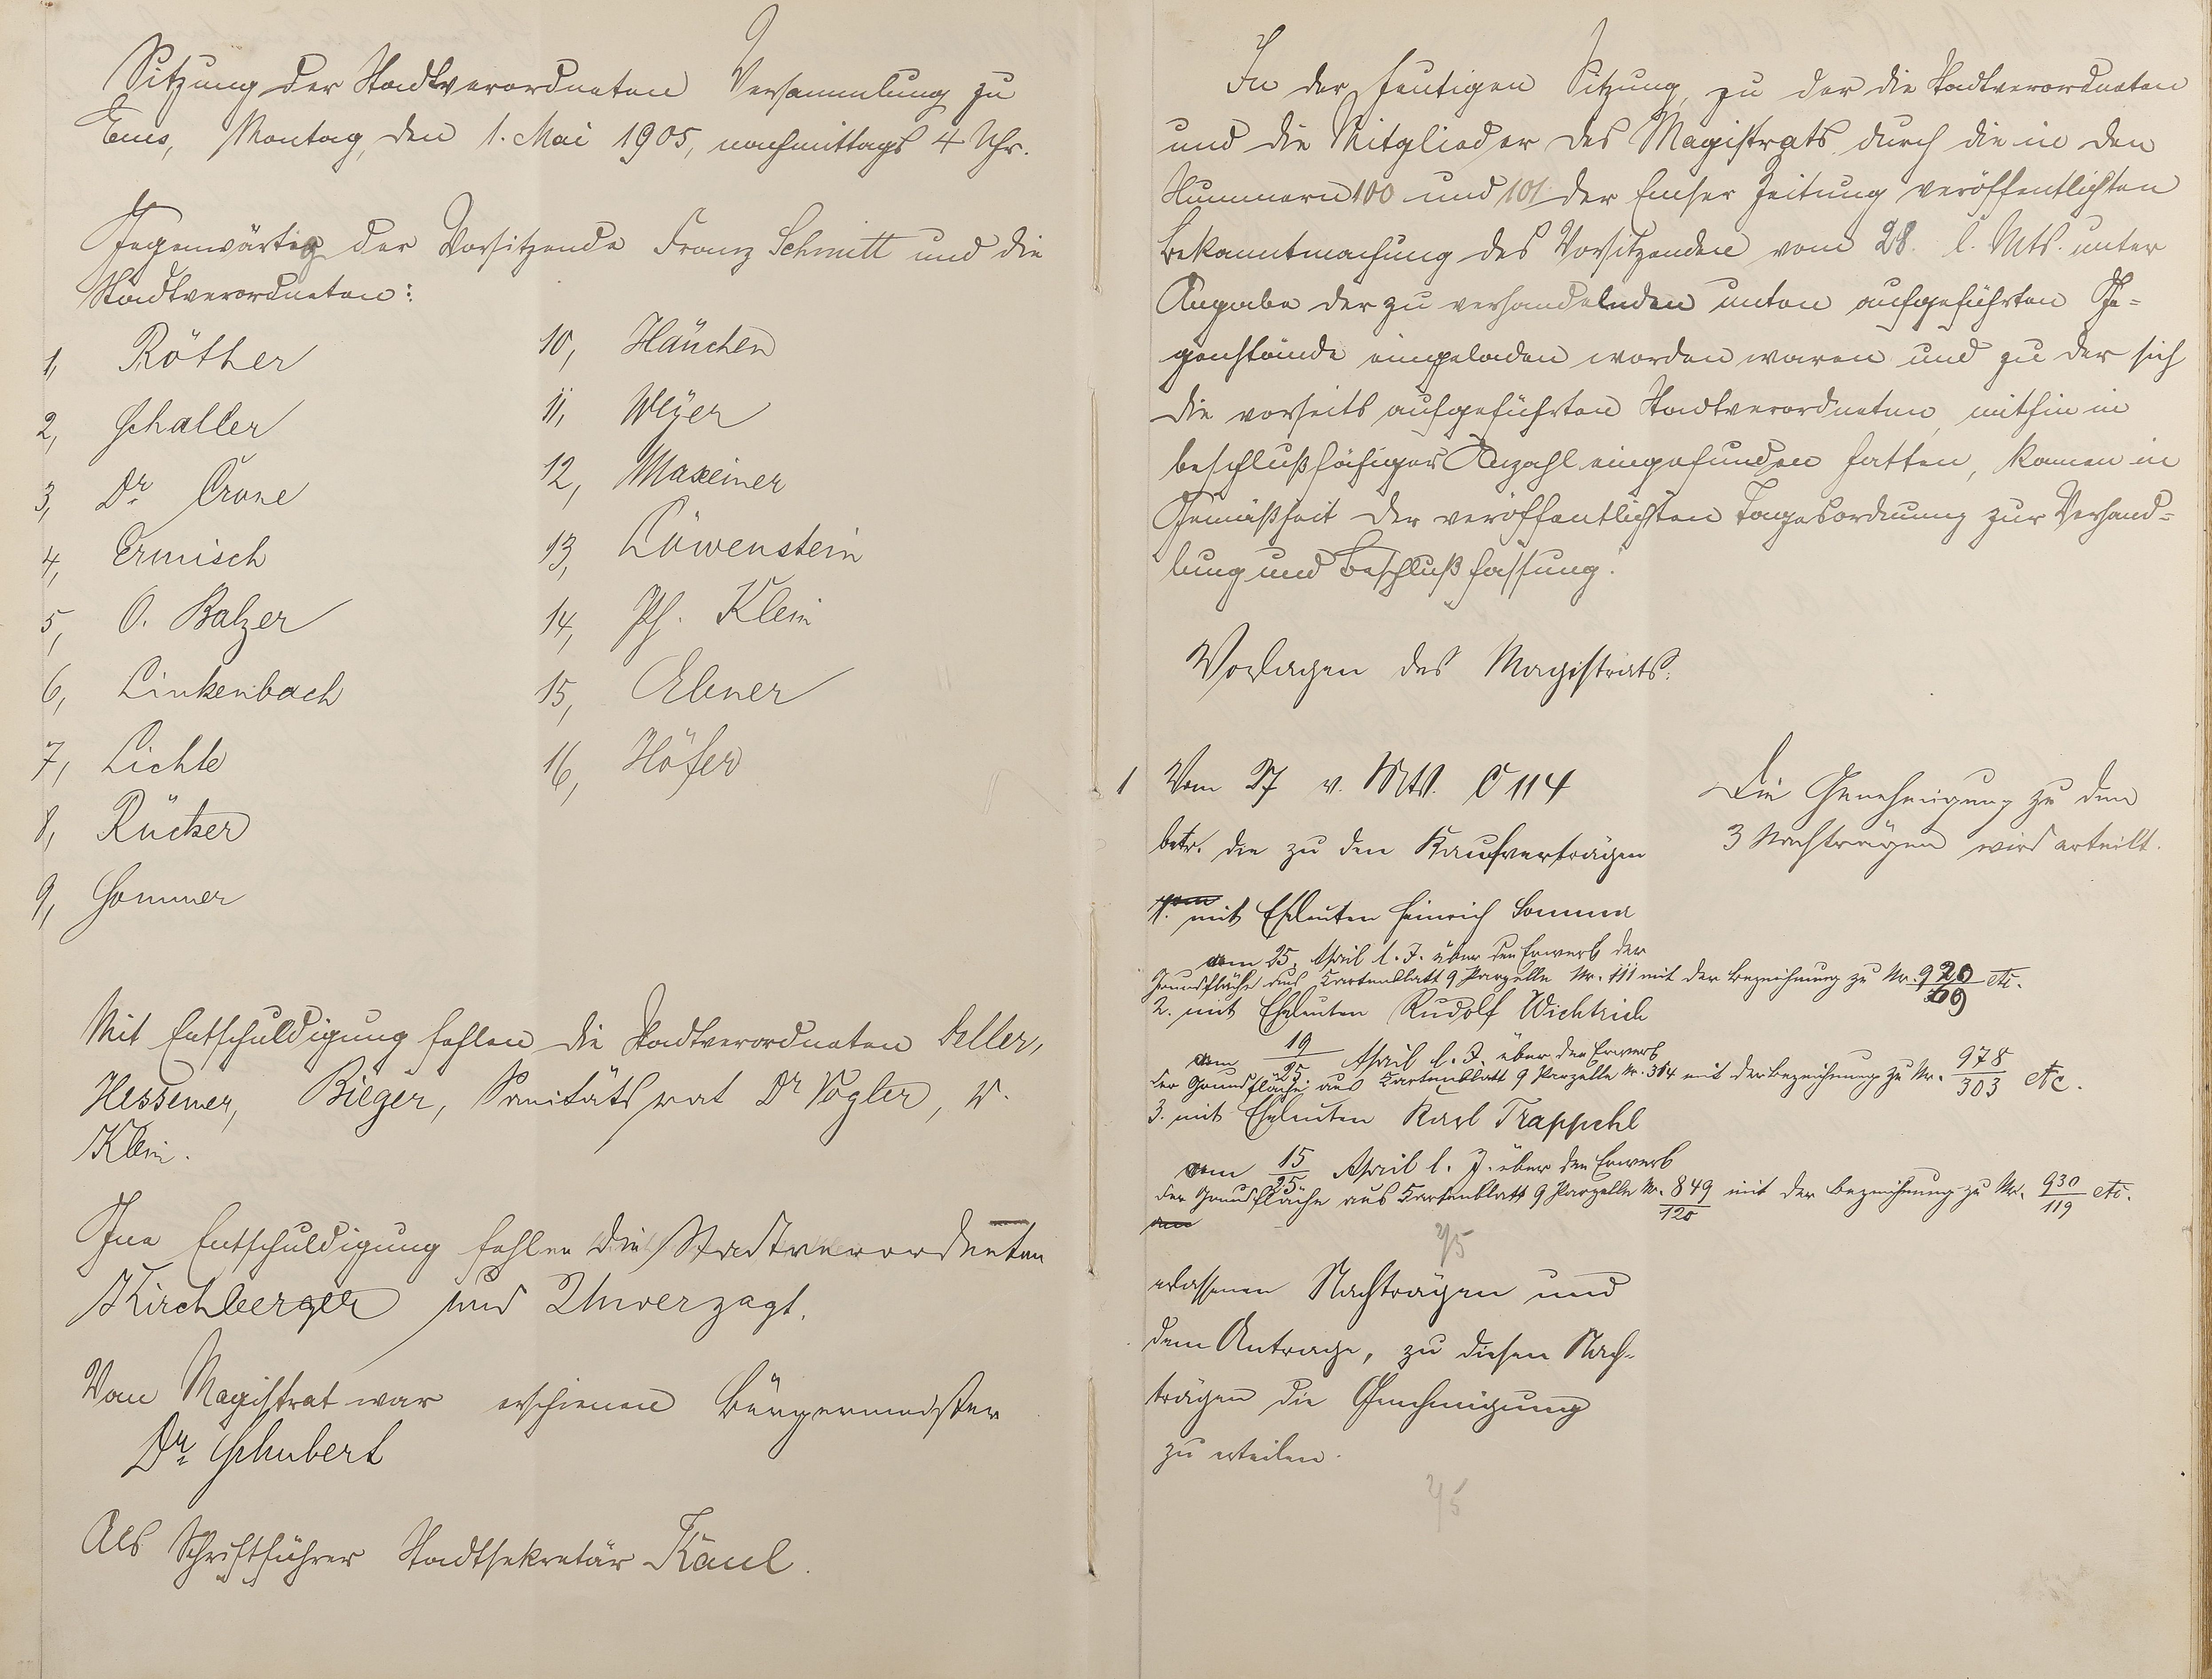 Sitzung der Stadtverordneten Versammlung zu
Ems, Montag, den 1. Mai 1905, nachmittags 4 Uhr.
Gegenwärtig der Vorsitzende Franz Schmitt und die
Stadtverordneten:
1, Röther
2, Schaller
3, Dr. Crone
4, Ermisch
5, O. Balzer
6, Linkenbach
7, Lichte
8, Rücker
9, Sommer
10, Hänchen
11, Meÿer
12, Maxeiner
13, Löwenstein
14, Ph. Klein
15, Ebner
16, Höfer
Mit Entschuldigung fehlen die Stadtverordneten Seller,
Hessemer, Bieger, Sanitätsrat Dr Vogler, W.
Klein.
Ohne Entschuldigung fehlen die Stadtverordneten
Kirchberger und Unverzagt.
Vom Magistrat war erschienen Bürgermeister
Dr. Schubert
Als Schriftführer Stadtsekretär Kaul.
In der heutigen Sitzung, zu der die Stadtverordneten
und die Mitglieder des Magistrats durch die in den
Nummern 100 und 101 der Emser Zeitung veröffentlichten
Bekanntmachung des Vorsitzenden vom 28. l. Mts. unter
Angabe der zu verhandelnden unten aufgeführten Ge=
genstände eingeladen worden waren und zu der sich
die vorseits aufgeführten Stadtverordneten, mithin in
beschlußfähiger Anzahl eingefunden hatten, kamen in
Gemäßheit der veröffentlichten Tagesordnung zur Verhand=
lung und Beschlußfassung:
Vorlagen des Magistrats.
1 Vom 27 v. Mts. C 114
betr. die zu den Kaufverträgen
1. mit Eheleuten Heinrich Sommer
vom 25. April l. J. über den Erwerb der
Grundfläche aus Kartenblatt 9 Parzelle Nr. 111 mit der Bezeichnung zu Nr. 920/69 etc.
2. mit Eheleuten Rudolf Wichtrich
vom 19/25. April l. J. über den Erwerb
der Grundfläche aus Kartenblatt 9 Parzelle Nr. 314 mit der Bezeichnung zu Nr. 978/303 etc.
3. mit Eheleuten Karl Trappehl
vom 15/25 April l. J. über den Erwerb
der Grundfläche aus Kartenblatt 9 Parzelle Nr. 849/120 mit der Bezeichnung zu Nr. 930/119 etc.
erlassenen Nachträgen und
dem Antrage, zu diesen Nach-
trägen die Genehmigung
zu erteilen.
Die Genehmigung zu den
3 Nachträgen wird erteilt.